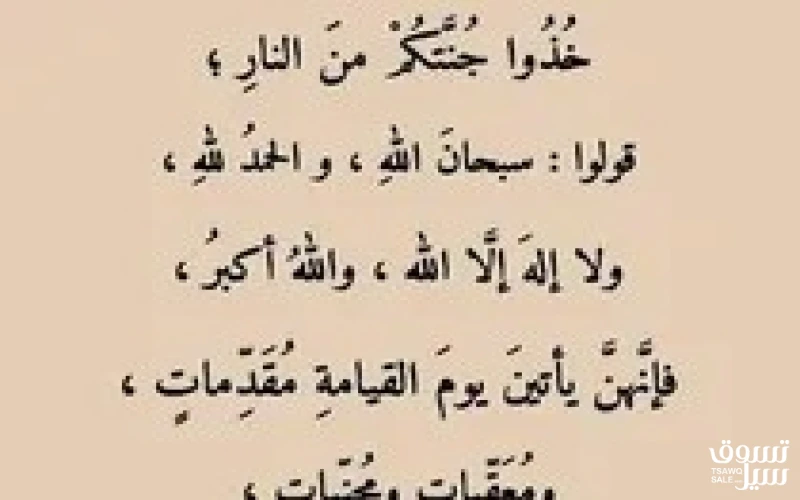 خُذُوا جُنَّتَكُمْ منَ النارِ ؛
قولوا : سبحانَ اللهِ ، و الحمدُ للهِ ،
ولا إلهَ إلَّا الله ، واللهُ أكبرُ ،
فإنَّهنَّ يأتينَ يومَ القيامةِ مُقَدِّماتٍ ،
ومُعَقِّباتٍ ومُجنِّباتٍ ،
تسوق
سيل
TSAWQ
SALE